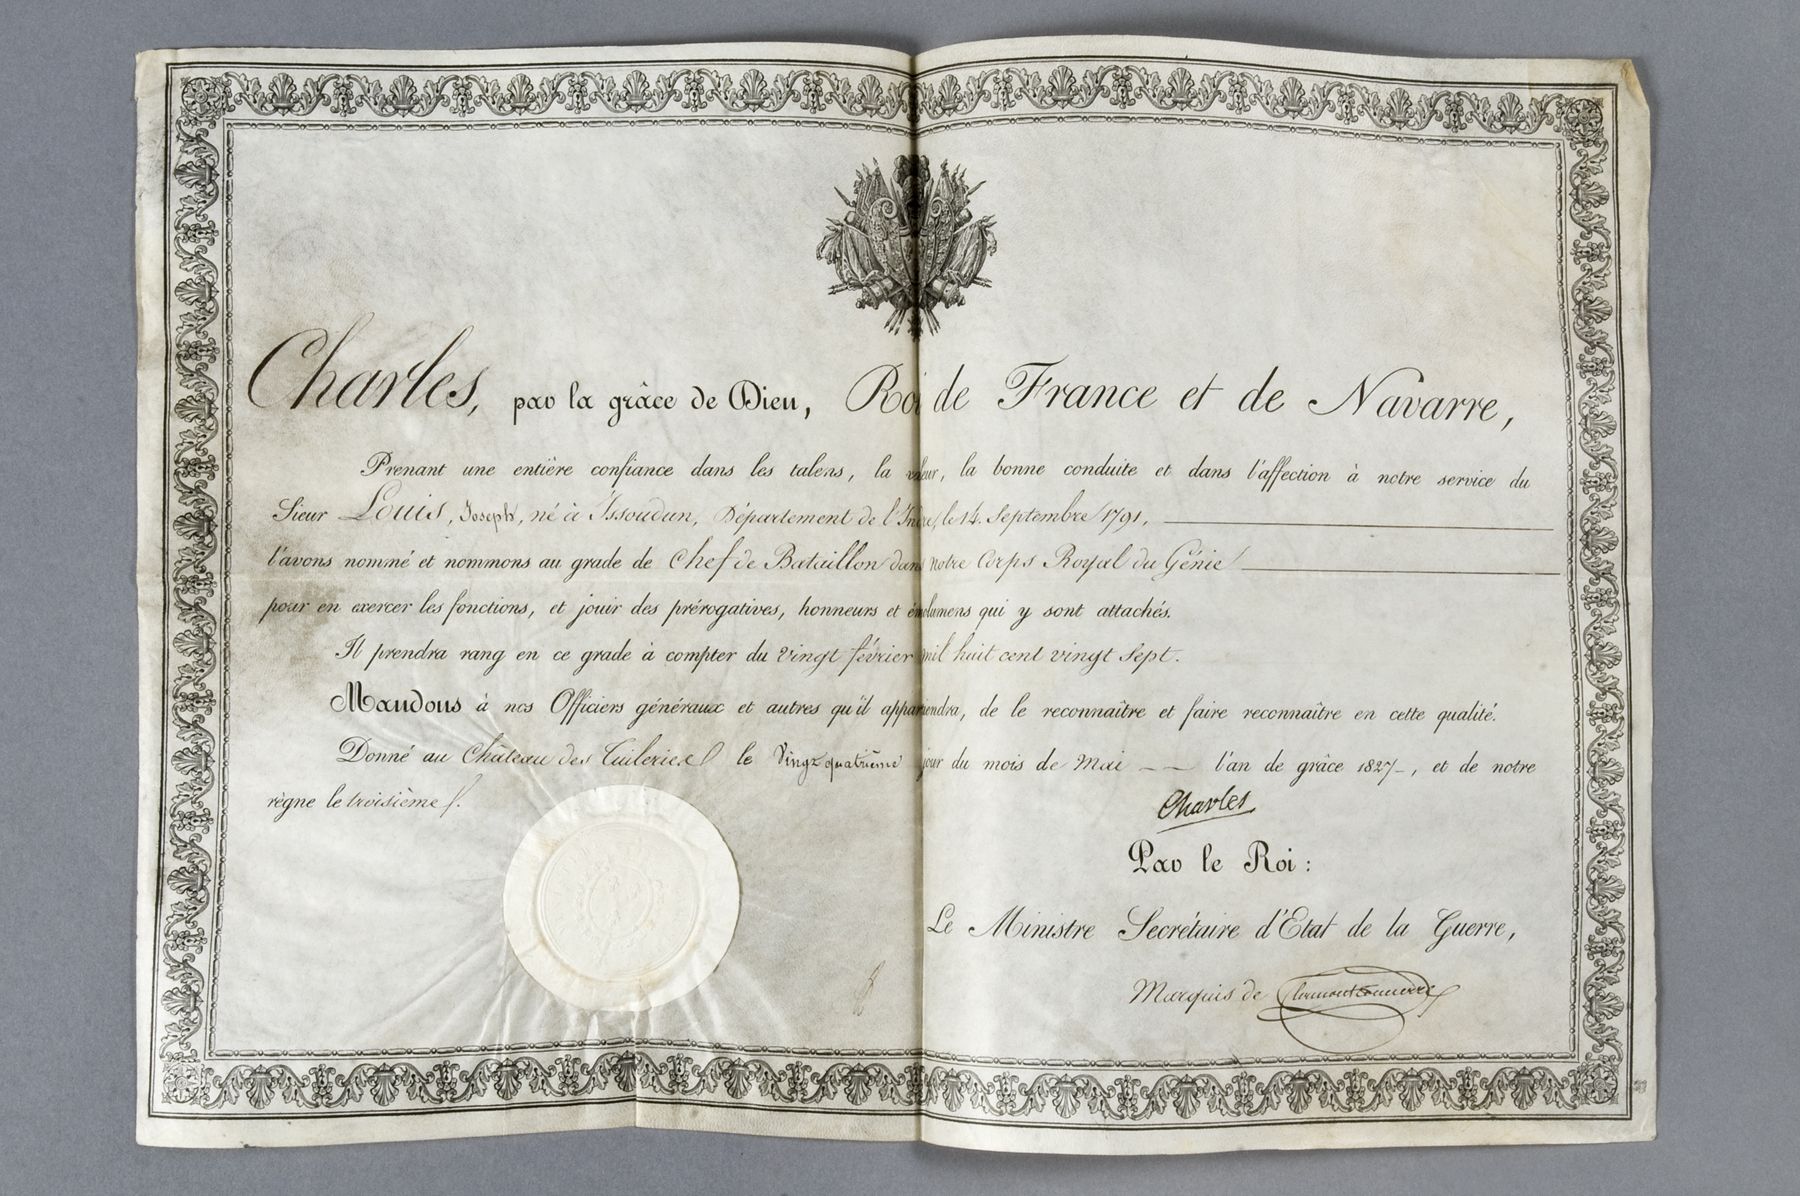 Charles, par la grâce de Dieu, Roi de France et de Navarre,
Prenant une entière confiance dans les talens, la valeur, la bonne conduite et dans l'affection à notre service du
Sieur Louis, Joseph, né à Issoudun, Département de l'Indre, le 14. Septembre 1791,
l'avons nommé et nommons au grade de Chef de Bataillon dans notre Corps Royal du Génie
pour en exercer les fonctions, et jouir des prérogatives, honneurs et émolumens qui y sont attachés.
Il prendra rang en ce grade à compter du vingt février mil huit cent vingt sept.
Mandons à nos Officiers généraux et autres qu'il appartiendra, de le reconnaître et faire reconnaître en cette qualité.
Donné au Château des Tuileries le Vingt quatrième jour du mois de Mai l'an de grâce 1827, et de notre
règne le troisième.
Charles
Par le Roi :
Le Ministre Secrétaire d'Etat de la Guerre,
Marquis de Clermont Tonnerre